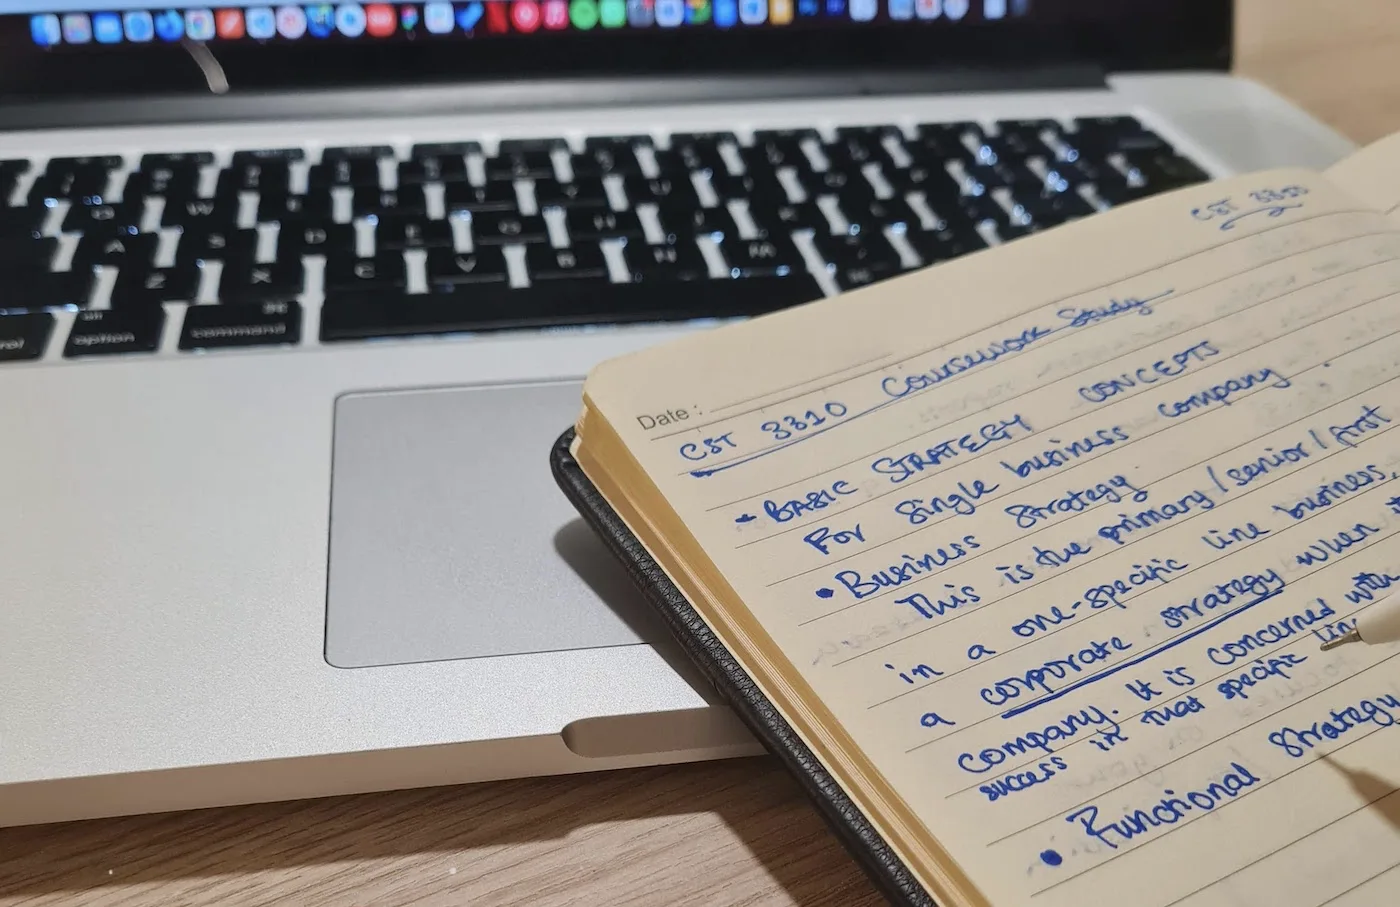 A
Z
X
C
V
B
N
M
option
command
CST 3310
Date :
CST 3310 Coursework Study
- BASIC STRATEGY CONCEPTS
For single business company
• Business Strategy
This is the primary/senior/first
in a one-specific line business
a corporate strategy when
company. It is concerned with
success in that specific lin
• Functional Strategy